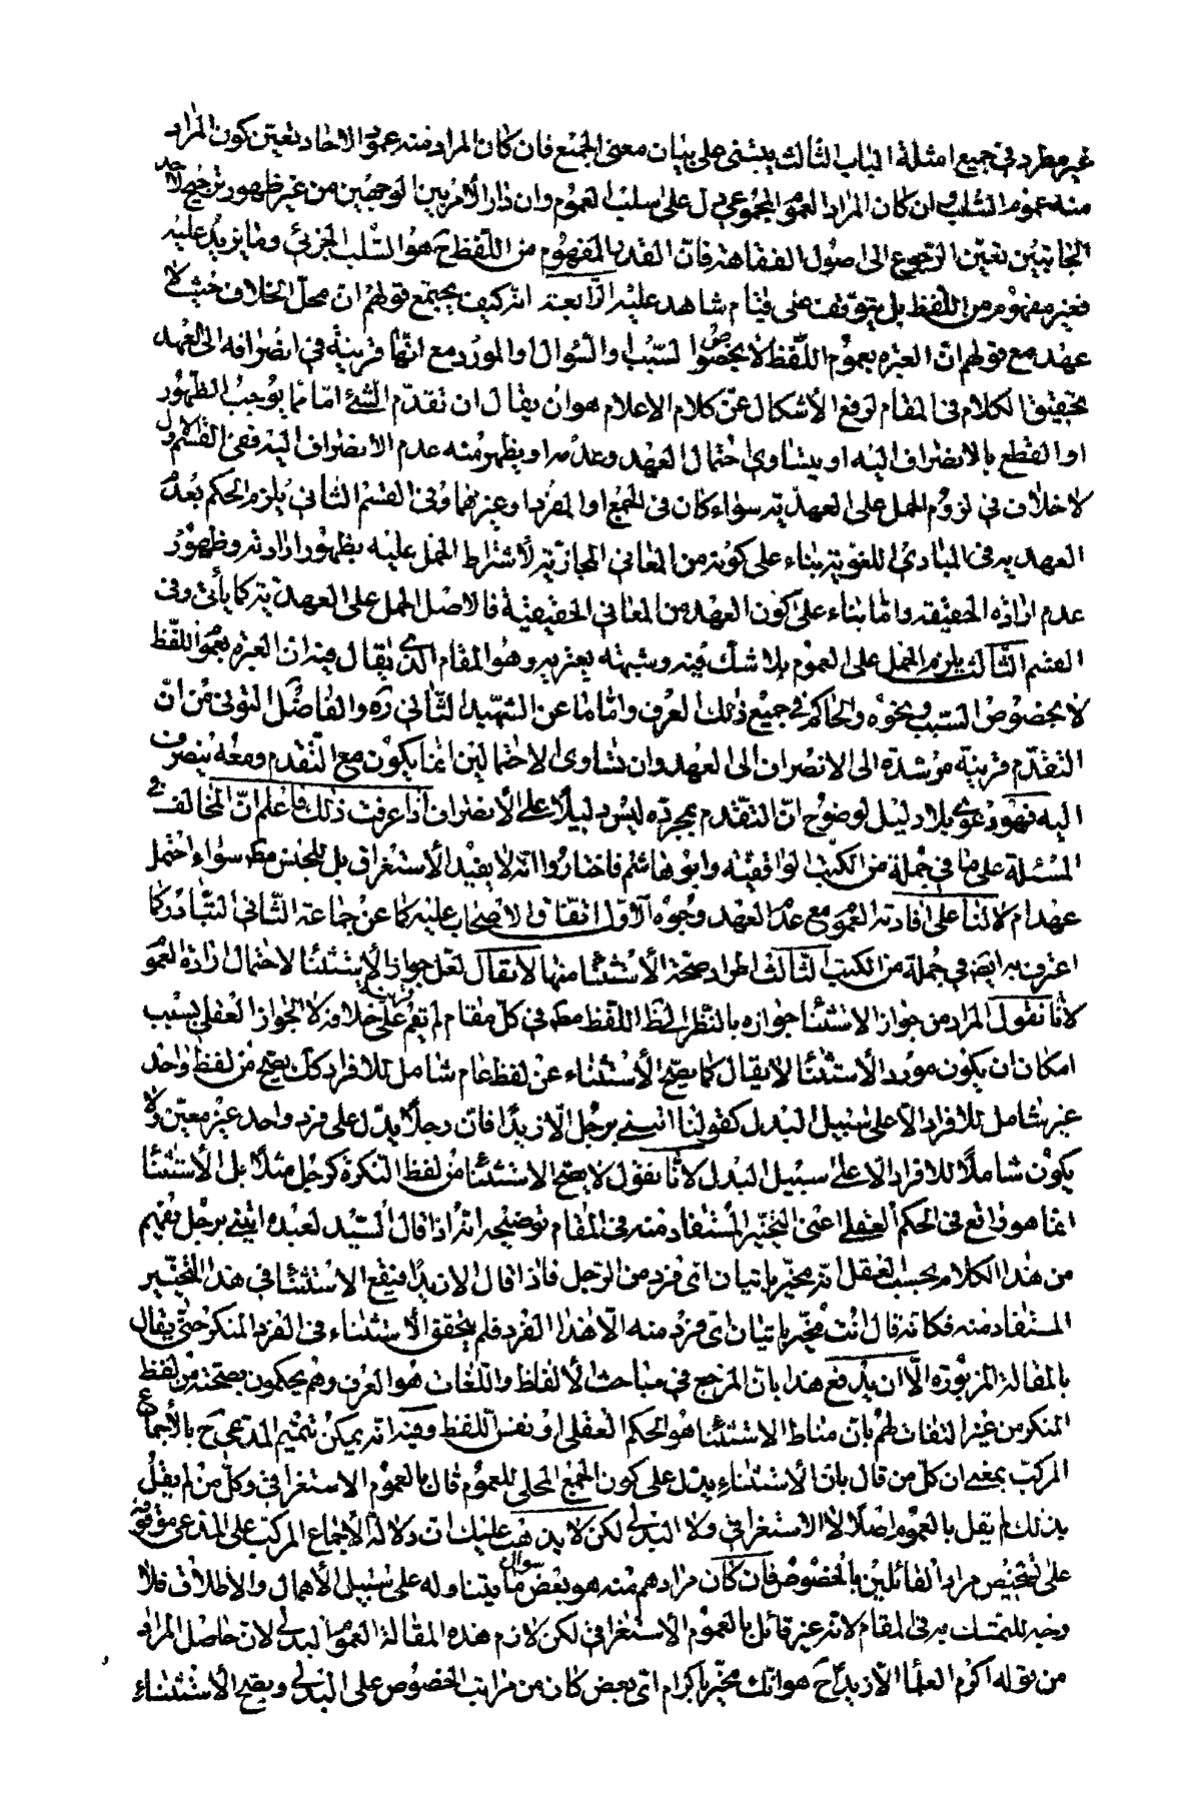 غير مطرد في جميع امثلة الباب الثالث يبتنى على بيان معنى الجمع فان كان المراد منه عموم الاحاد تعين كون المراد
منه عموم السلب وان كان المراد العموم المجموعي دل على سلب العموم وان دار الامر بين الوجهين من غير ظهور ترجيح لاحد
الجانبين تعين الرجوع الى اصول الفقاهة فان القدر المفهوم من اللفظ ح هو السلب الجزئي وما يزيد عليه
فغير مفهوم من اللفظ بل يتوقف على قيام شاهد عليه الرابعة انه كيف يجتمع قولهم ان محل الخلاف حيث لا
عهد مع قولهم ان العبرة بعموم اللفظ لا بخصوص السبب والسؤال والمورد مع انها قرينة في انصرافه الى العهد
تحقيق الكلام في المقام لرفع الاشكال عن كلام الاعلام هو ان يقال ان تقدم الشئ اما مما يوجب الظهور
او القطع بالانصراف اليه او يتساوى احتمال العهد وعدمه او يظهر منه عدم الانصراف اليه ففي القسم الاول
لا خلاف في لزوم الحمل على العهدية سواء كان في الجمع او المفرد او غيرهما وفي القسم الثاني يلزم الحكم بعدم
العهدية في المبادي اللغوية بناء على كونه من المعاني المجازية لاشتراط الحمل عليه بظهور ارادته وظهور
عدم ارادة الحقيقة واما بناء على كون العهد من المعاني الحقيقية فالاصل الحمل على العهدية كما يأتي وفي
القسم الثالث يلزم الحمل على العموم بلا شك فيه وشبهة يعتريه وهو المقام الذي يقال فيه ان العبرة بعموم اللفظ
لا بخصوص السبب ونحوه والحاكم في جميع ذلك العرف واما ما عن الشهيد الثاني ره والفاضل التوني من ان
التقدم قرينة مرشدة الى الانصراف الى العهد وان تساوى الاحتمالين انما يكون مع التقدم ومعه ينصرف
اليه فهو دعوى بلا دليل لوضوح ان التقدم بمجرده ليس دليلا على الانصراف اذا عرفت ذلك فاعلم ان المخالف في
المسئلة على ما في جملة من الكتب الواقفية وابو هاشم فاختاروا انه لا يفيد الاستغراق بل للجنس مط سواء احتمل
عهد ام لا لنا على افادته العموم مع عدم العهد وجوه الاول اتفاق الاصحاب عليه كما عن جماعة الثاني التبادر كما
اعترف به ايضا في جملة من الكتب الثالث اطراد صحة الاستثنا منها لا يقال لعل جواز الاستثنا لاحتمال ارادة العموم
لانا نقول المراد من جواز الاستثنا جوازه بالنظر الى لحاظ اللفظ مط في كل مقام لم تقم قرينة على خلافه لا الجواز العقلي بسبب
امكان ان يكون مورد الاستثنا لا يقال كما يصح الاستثناء عن لفظ عام شامل للافراد كك يصح من لفظ واحد
غير شامل للافراد الا على سبيل البدل كقولنا ائتني برجل الا زيدا فان رجلا يدل على فرد واحد غير معين ولا
يكون شاملا للافراد الا على سبيل البدل لانا نقول لا يصح الاستثنا من لفظ النكرة كرجل مثلا بل الاستثنا
انما هو واقع في الحكم العقلي اعني التخيير المستفاد منه في المقام توضيحه انه اذا قال السيد لعبده ائتني برجل نفهم
من هذا الكلام بحسب العقل انه مخير باتيان اي فرد من الرجل فاذا قال الا زيدا فيقع الاستثنا في هذا التخيير
المستفاد منه فكانه قال انت مخير باتيان اي فرد منه الا هذا الفرد فلم يتحقق الاستثناء في الفرد المنكر حتى يقال
بالمقالة المزبورة الا ان يدفع هذا بان المرجع في مباحث الالفاظ واللغات هو العرف وهم يحكمون بصحته من لفظ
المنكر من غير التفات لهم بان مناط الاستثنا هو الحكم العقلي او نفس اللفظ وفيه انه يمكن تتميم المدعى ح بالاجماع
المركب بمعنى ان كل من قال بان الاستثناء يدل على كون الجمع المحلى للعموم قال بالعموم الاستغراقي وكل من لم يقل
بذلك لم يقل بالعموم اصلا لا الاستغراقي ولا البدلي لكن لا يذهب عليك ان دلالة الاجماع المركب على المدعى موقوفة
على تشخيص مراد القائلين بالخصوص فان كان مرادهم منه هو بعض ما يتناوله على سبيل الاهمال والاطلاق فلا
وجه للتمسك به في المقام لانه غير قائل بالعموم الاستغراقي لكن لازم هذه المقالة العموم البدلي لان حاصل المراد
من قوله اكرم العلما الا زيدا ح هو انك مخير باكرام اي بعض كان من مراتب الخصوص على البدلي ويصح الاستثناء